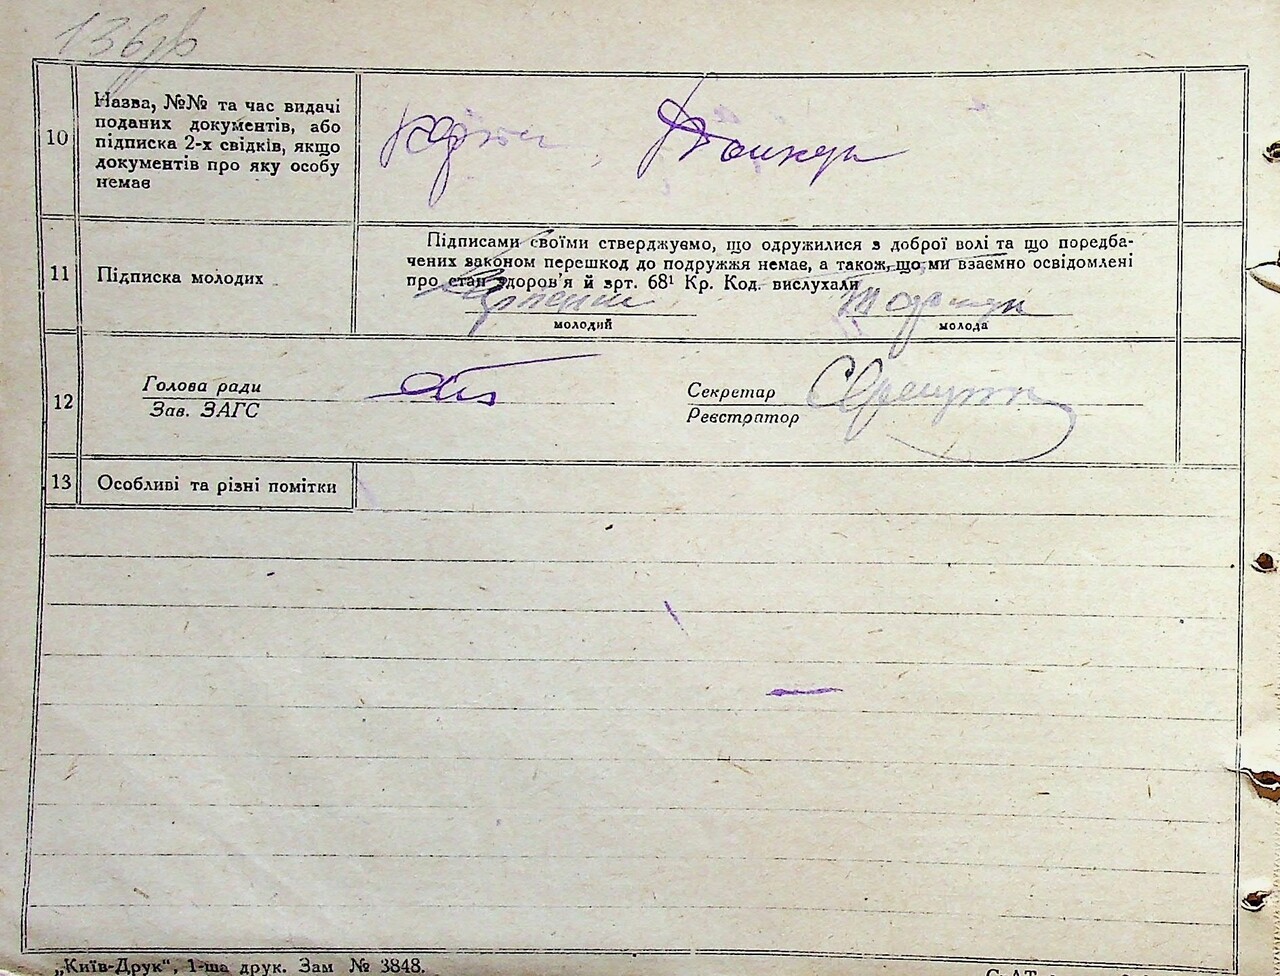 10
Назва, №№ та час видачі
поданих документів, або
підписка 2-х свідків, якщо
документів про яку особу
немає
11
Підписка молодих
Підписами своїми стверджуємо, що одружилися з доброї волі та що передба-
чених законом перешкод до подружжя немає, а також, що ми взаємно освідомлені
про стан здоров'я й зрт. 68¹ Кр. Код. вислухали
молодий
молода
12
Голова ради
Зав. ЗАГС
Секретар
Реєстратор
13
Особливі та різні помітки
„Київ-Друк", 1-ша друк. Зам № 3848.